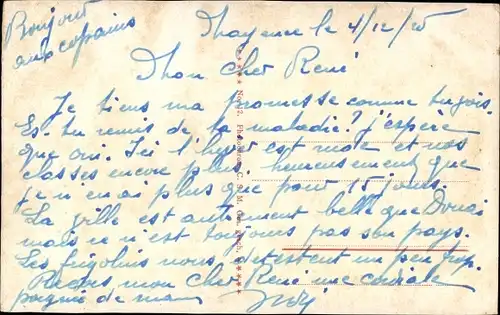 Bonjour
aux copains
Mayence le 4/12/25
Mon cher René
Je tiens ma promesse comme tu vois.
Es-tu remis de ta maladie? j'espère
que oui. Ici l'hyver est rude et nos
classes encore plus, heureusement que
je n'en ai plus que pour 15 jours.
La ville est autrement belle que Douai
mais ce n'est toujours pas son pays.
Les frigolins nous détestent un peu trop.
Reçois, mon cher René une cordiale
poignée de main